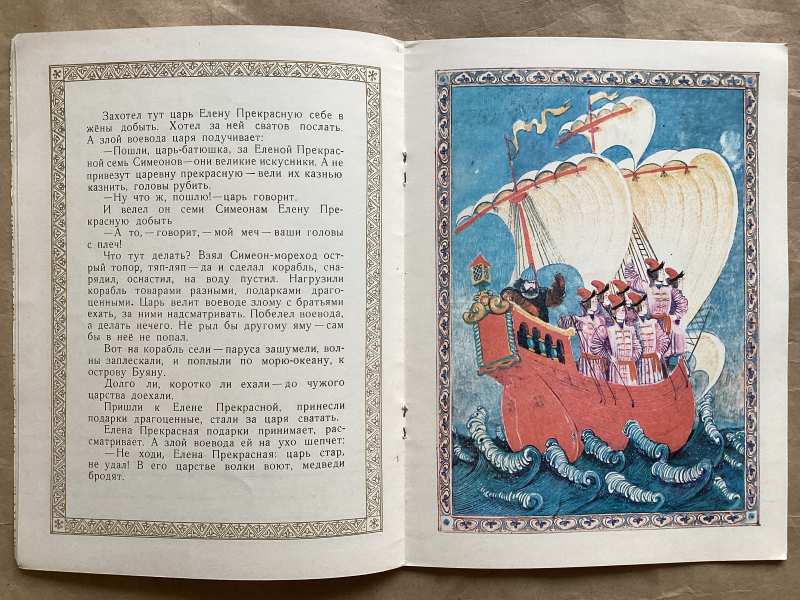 Захотел тут царь Елену Прекрасную себе в
жёны добыть. Хотел за ней сватов послать.
А злой воевода царя подучивает:
—Пошли, царь-батюшка, за Еленой Прекрас-
ной семь Симеонов—они великие искусники. А не
привезут царевну прекрасную—вели их казнью
казнить, головы рубить.
—Ну что ж, пошлю!—царь говорит.
И велел он семи Симеонам Елену Пре-
красную добыть
—А то,—говорит,—мой меч—ваши головы
с плеч!
Что тут делать? Взял Симеон-мореход ост-
рый топор, тяп-ляп—да и сделал корабль, сна-
рядил, оснастил, на воду пустил. Нагрузили
корабль товарами разными, подарками драго-
ценными. Царь велит воеводе злому с братьями
ехать, за ними надсматривать. Побелел воевода,
а делать нечего. Не рыл бы другому яму—сам
бы в неё не попал.
Вот на корабль сели—паруса зашумели, вол-
ны заплескали, и поплыли по морю-океану, к
острову Буяну.
Долго ли, коротко ли ехали—до чужого
царства доехали.
Пришли к Елене Прекрасной, принесли
подарки драгоценные, стали за царя сватать.
Елена Прекрасная подарки принимает, рас-
сматривает. А злой воевода ей на ухо шепчет:
—Не ходи, Елена Прекрасная: царь стар,
не удал! В его царстве волки воют, медведи
бродят.